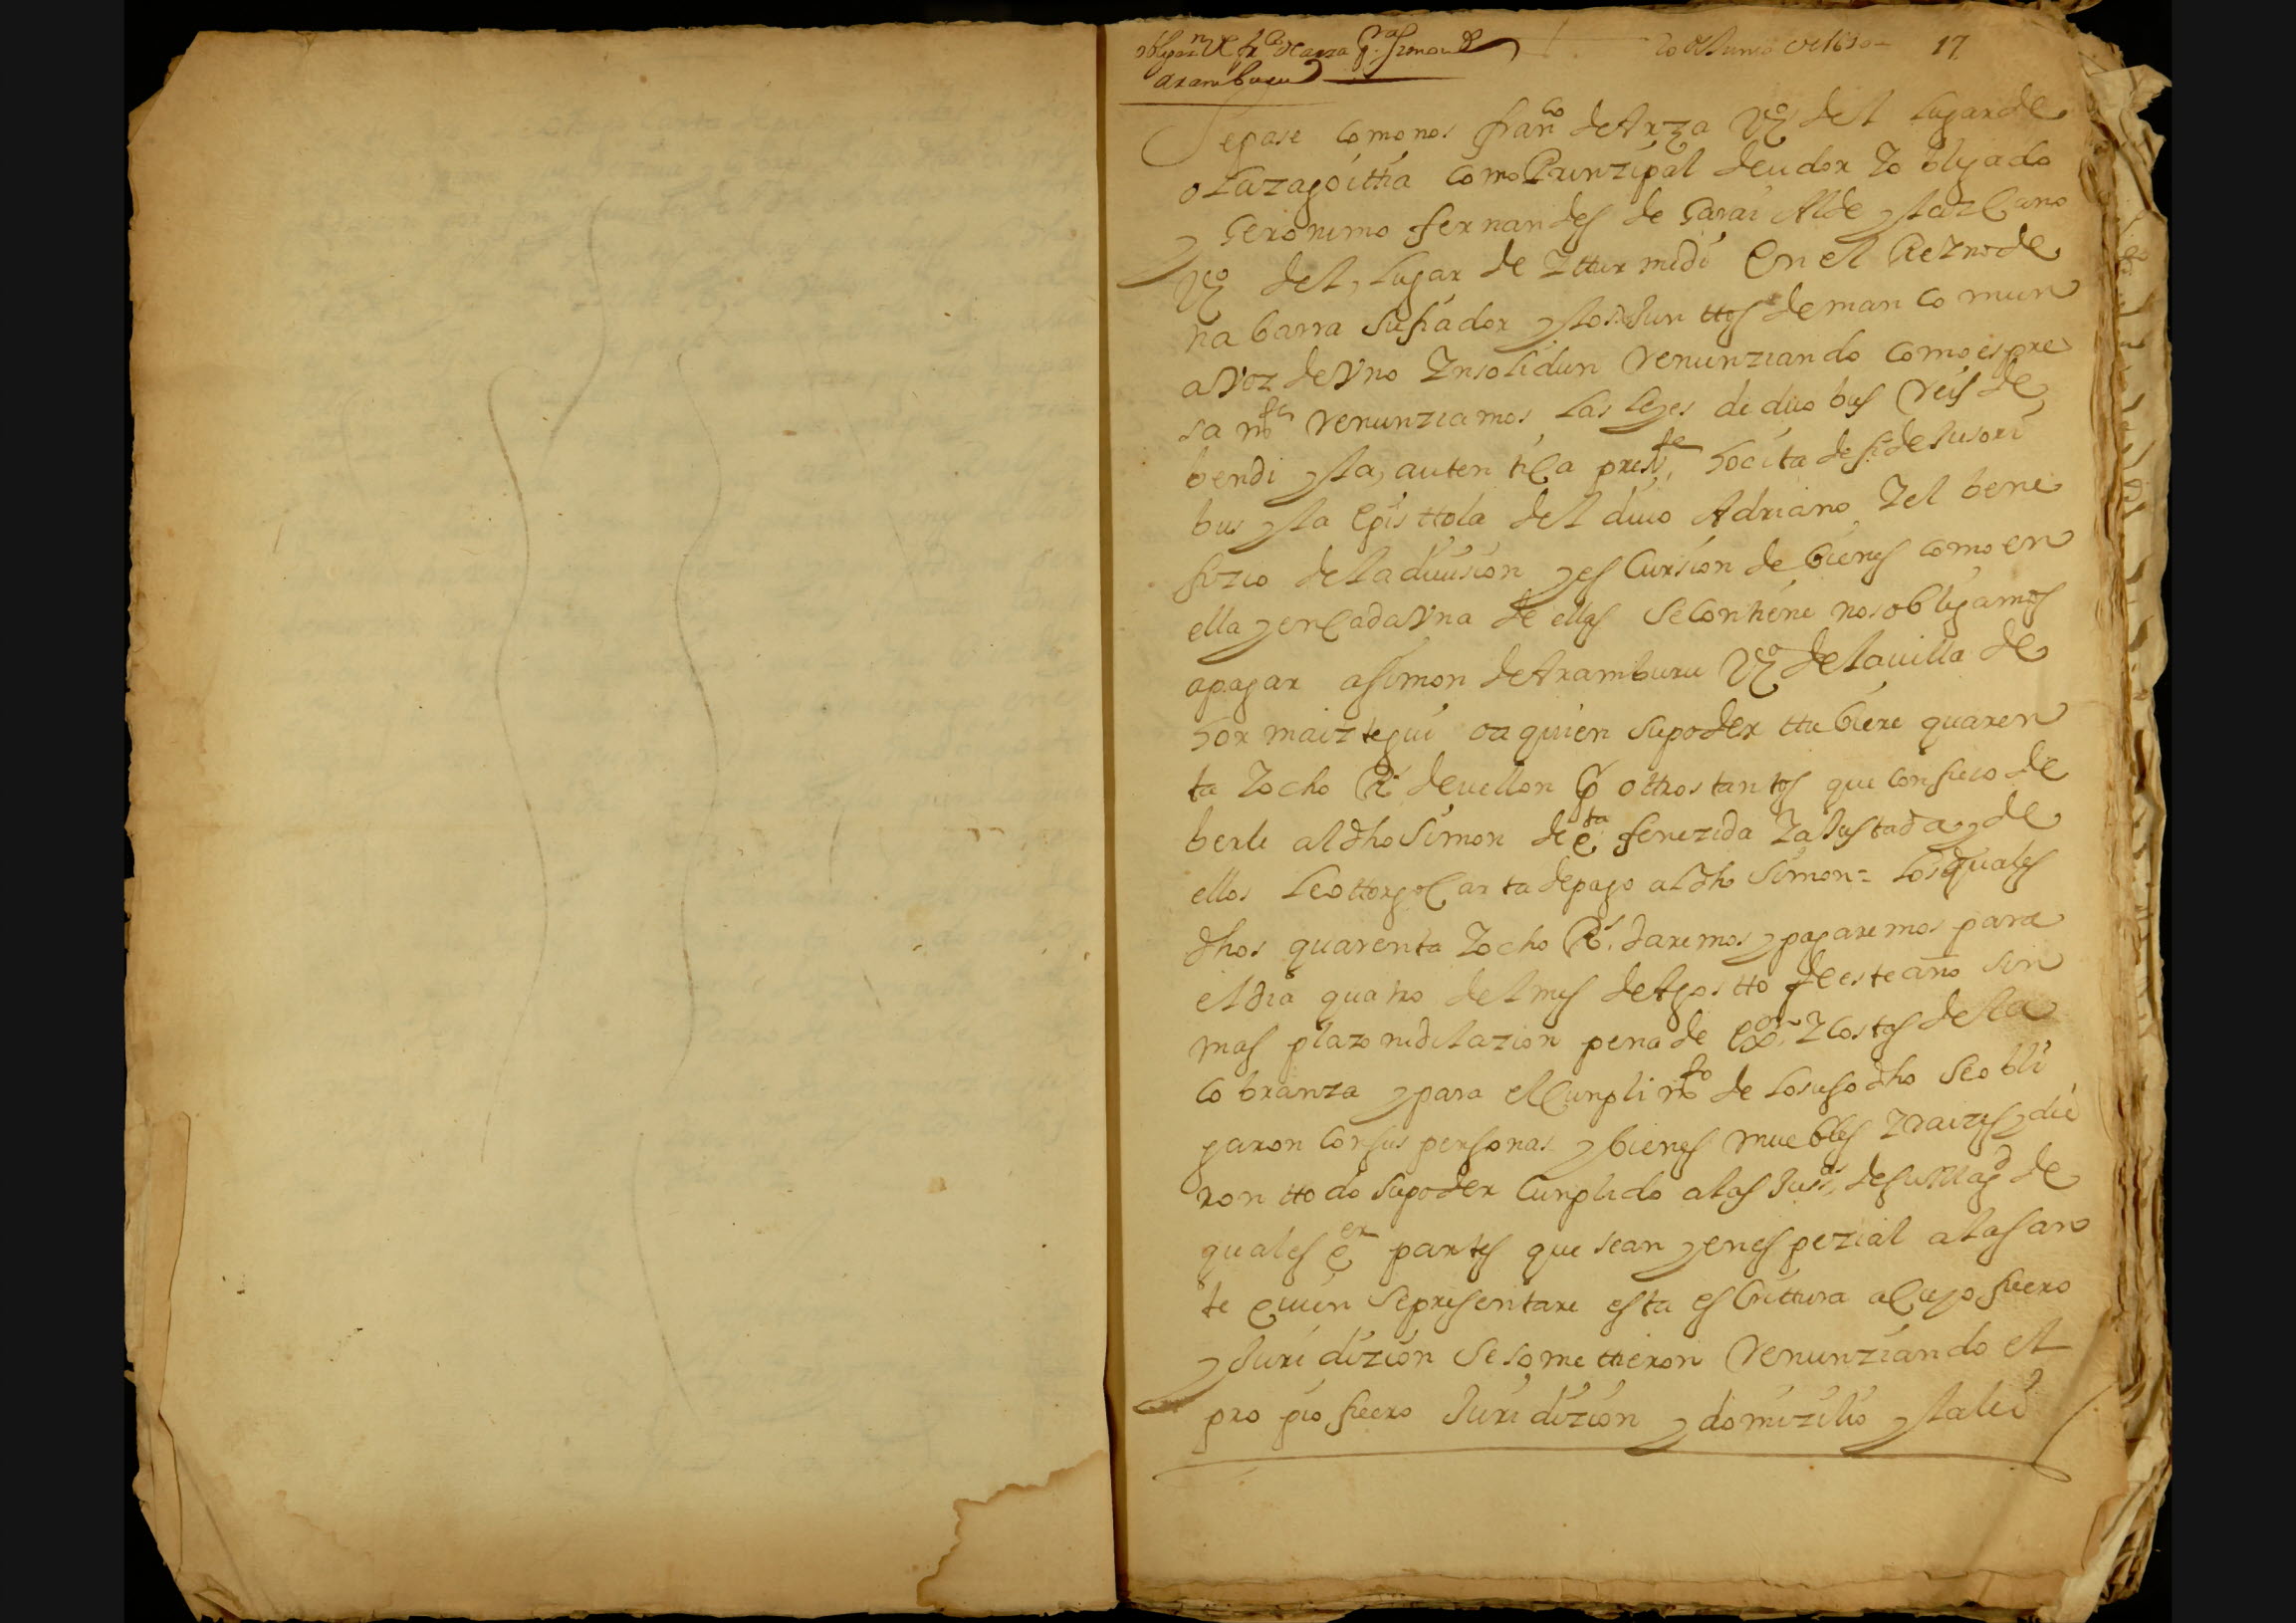 obligaz.n de fr.co de arza p.a simon de
aramburu
20 de Junio de 16 17
Sepase como nos fran.co de Arza Vz.o del lugar de
olazagoittia como Prinzipal deudor Y obligado
y Geronimo fernandes de Garai Alde y lazcano
Vz.o del lugar de Ytturmidi En el Reino de
nabarra su fiador y los dos Junttos de man comun
a voz de Vno Ynsolidun renunziando como espre
sam.te renunziamos las leyes de duobus reis de
bendi y la autentica pres.te hocita de fide Jusori
bus y la Episttola del diuo Adriano Y el bene
fizio de la diuision y escursion de bienes como en
ella y en cada Vna de ellas se contiene nos obligamos
a pagar a simon de Aramburu Vz.o de la uilla de
hormaiztegui o a quien su poder ttubiere quaren
ta Y ocho R.s de uellon por ottros tantos que confieso de
berle al dho Simon de q.ta fenezida Y a Justada y de
ellos le ottorgo Carta de pago al dho Simon = los quales
dhos quarenta Y ocho R.s daremos y pagaremos para
el dia quatro del mes de Agostto de este año sin
mas plazo ni dilazion pena de ex.on Y costas de la
cobranza y para el Cunplim.to de lo suso dho se obli
garon con sus personas y bienes muebles Y raizes y die
ron ttodo su poder Cunplido a las Jus.as de su Mag.d de
quales q.er partes que sean y en espezial a las an
te quien se presentare esta escrittura a Cuyo fuero
y Juridizion se somettieron renunziando el
propio fuero Juridizion y domizilio y la lei